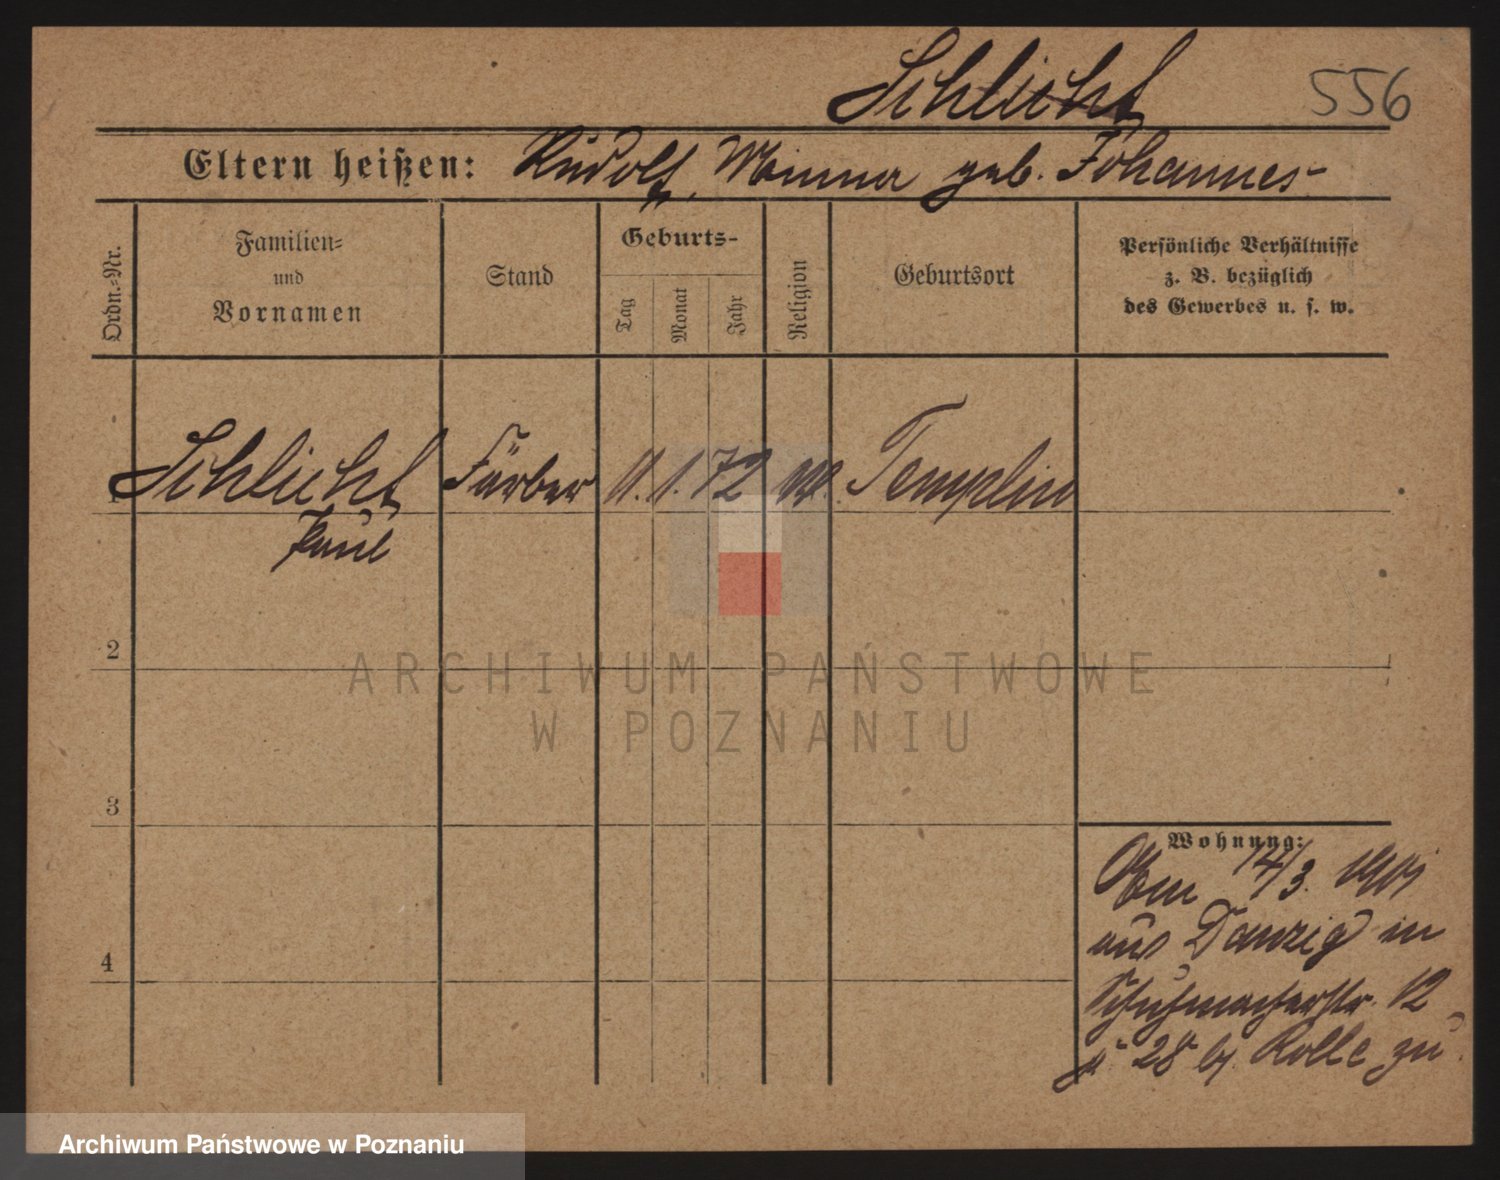 Schlicht 556
Eltern heißen: Rudolf, Minna geb. Johannes
Ordn.-Nr.
Familien-
und
Vornamen
Stand
Geburts-
Tag
Monat
Jahr
Religion
Geburtsort
Persönliche Verhältnisse
z. B. bezüglich
des Gewerbes u. s. w.
1 Schlicht Färber 11. 1. 72 Templin
Paul
2
ARCHIWUM PAŃSTWOWE
W POZNANIU
3
Wohnung:
Am 14/3. 1901
aus Danzig in
4
Schuhmacherstr. 12
28 bj. Rolle zu
Archiwum Państwowe w Poznaniu